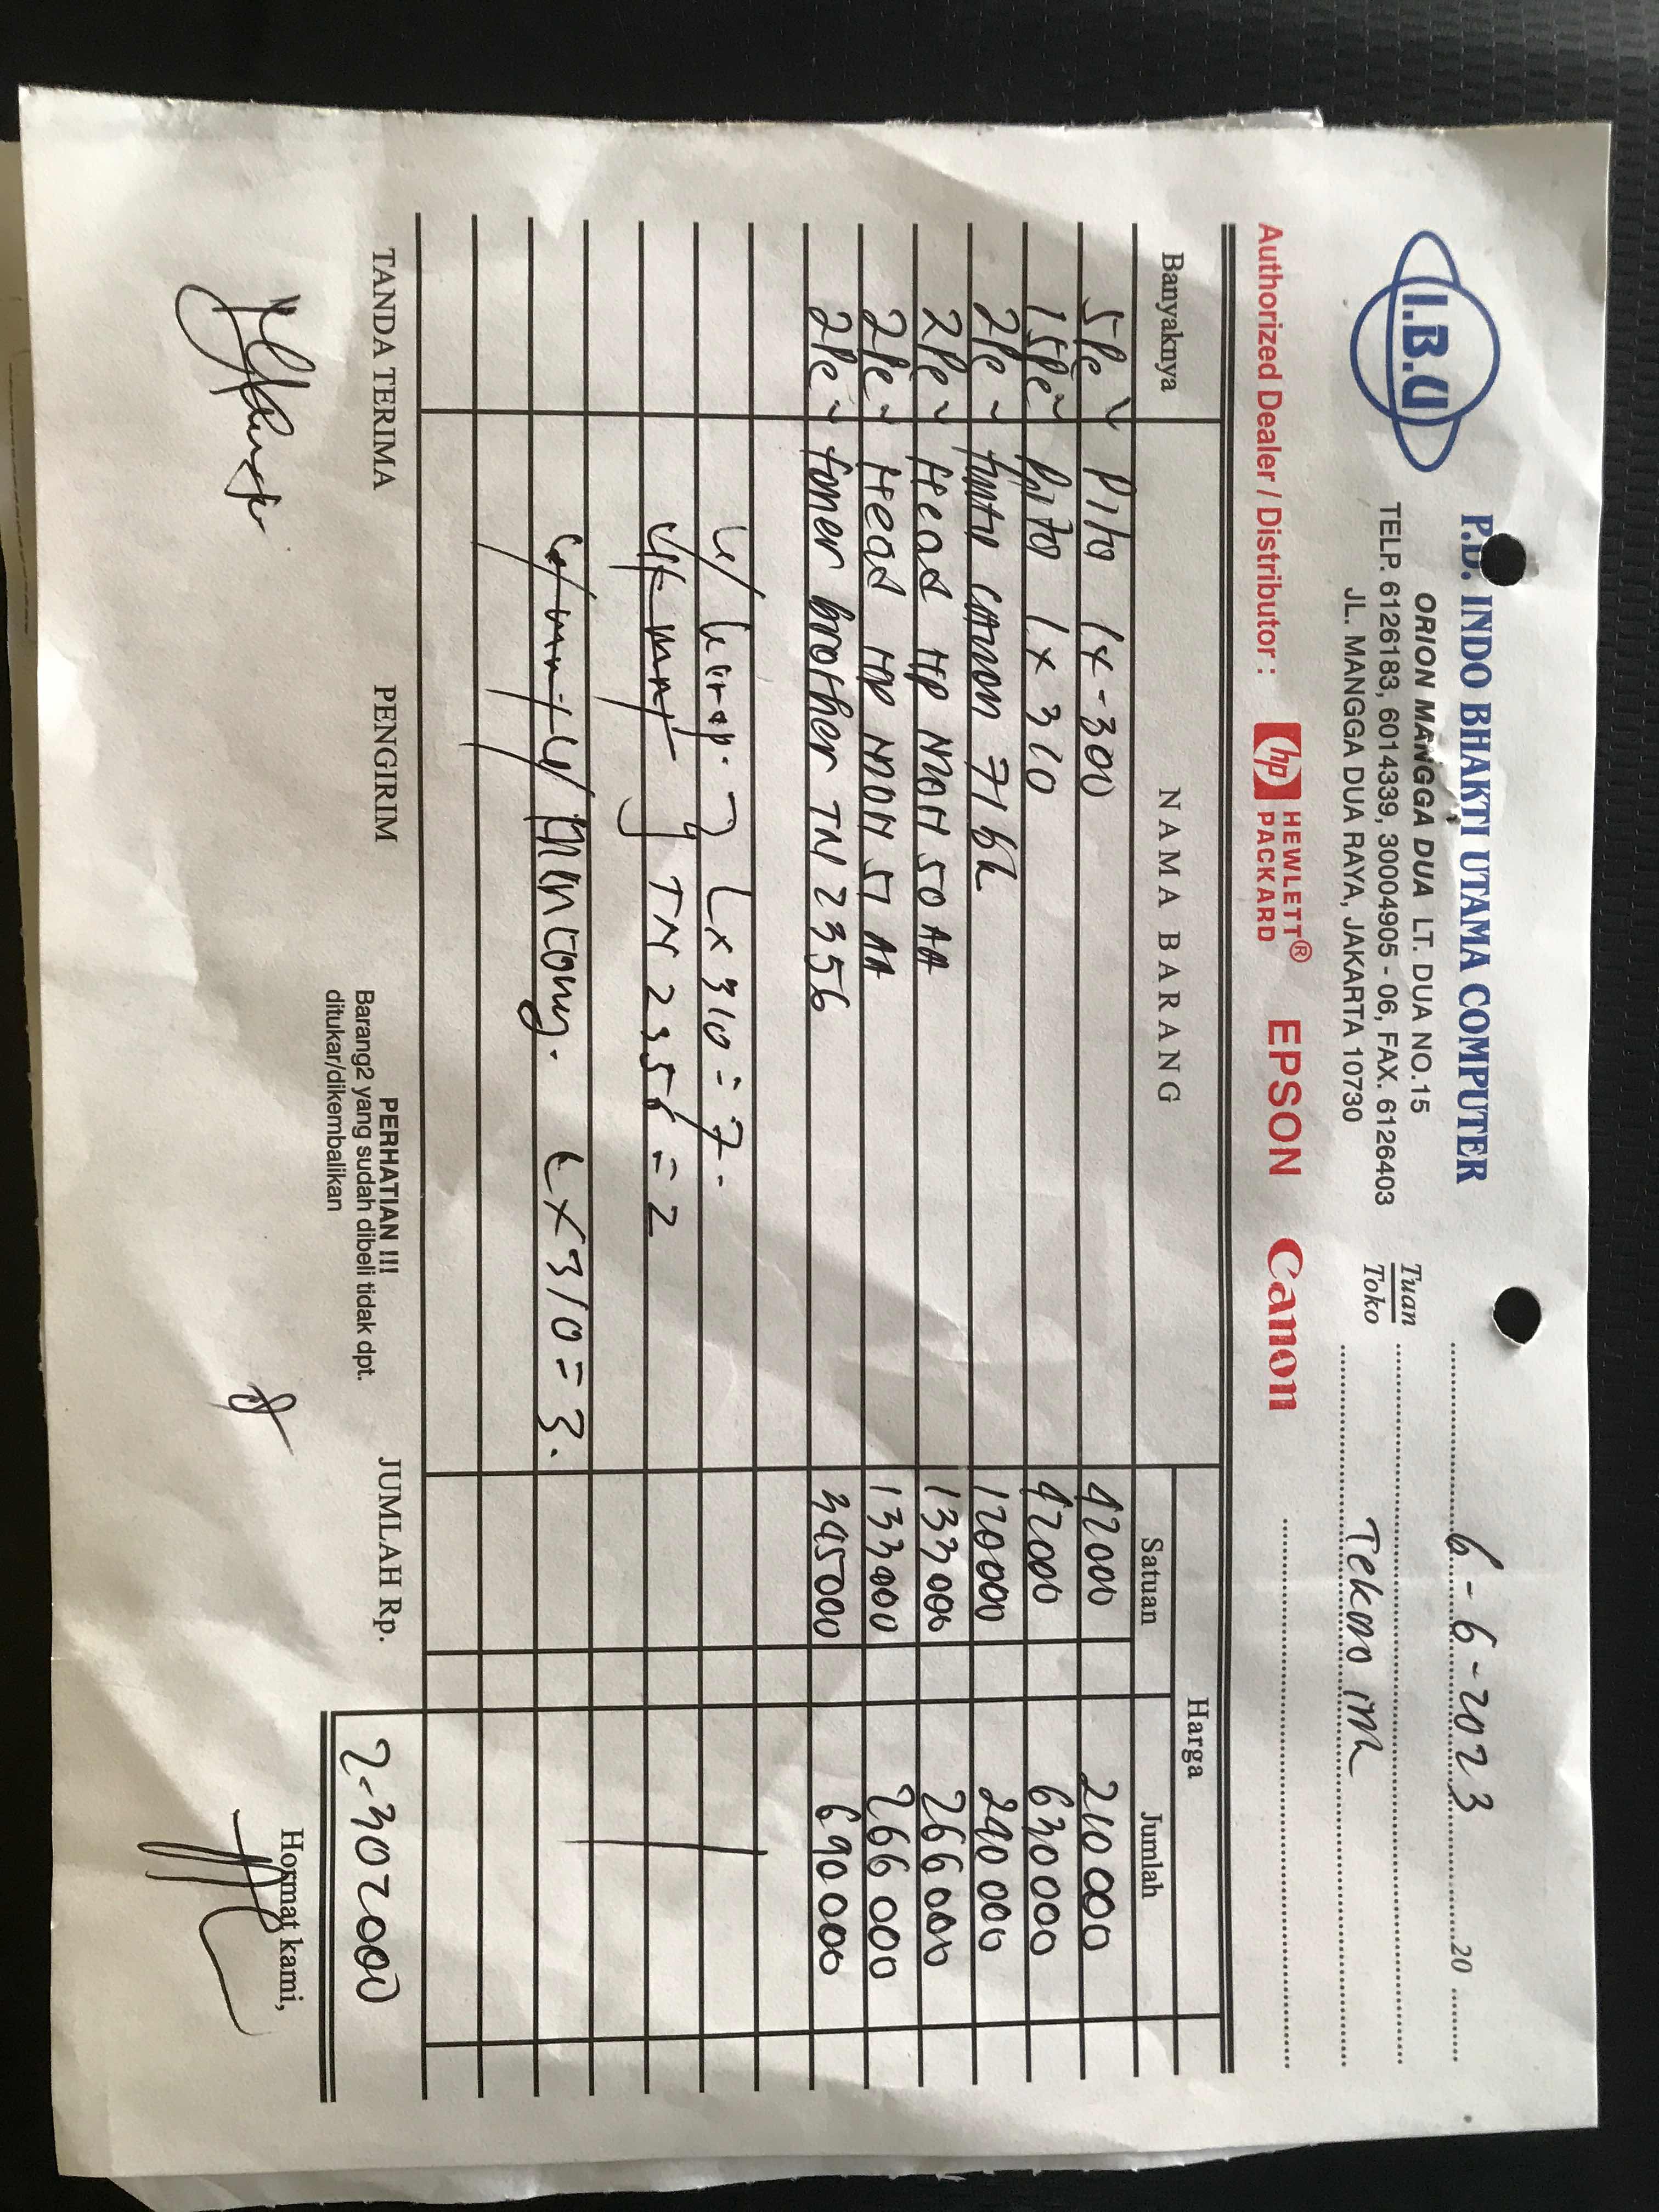 I.B.U
P.D. INDO BHAKTI UTAMA COMPUTER
ORION MANGGA DUA LT. DUA NO.15
TELP. 6126183, 6014339, 30004905 - 06, FAX. 6126403
JL. MANGGA DUA RAYA, JAKARTA 10730
6-6-2023 20
Tuan
Toko
Tekno
Authorized Dealer / Distributor : hp HEWLETT® PACKARD EPSON Canon
Banyaknya NAMA BARANG Harga
Satuan Jumlah
5 Pc Pita LX-300 42000 210000
15 Pc Pita LX310 42000 630000
2 Pc Canon 71 bk 120000 240000
2 Pc Head HP MOH 50 AA 133000 266000
2 Pc Head HP MOH 51 AA 133000 266000
2 Pc Toner brother TN 2356 345000 690000
LX 310 = 7.
TN 2356 = 2
LX 310 = 3.
TANDA TERIMA PENGIRIM
PERHATIAN !!!
Barang2 yang sudah dibeli tidak dpt.
ditukar/dikembalikan
JUMLAH Rp. 2-302000
Hormat kami,